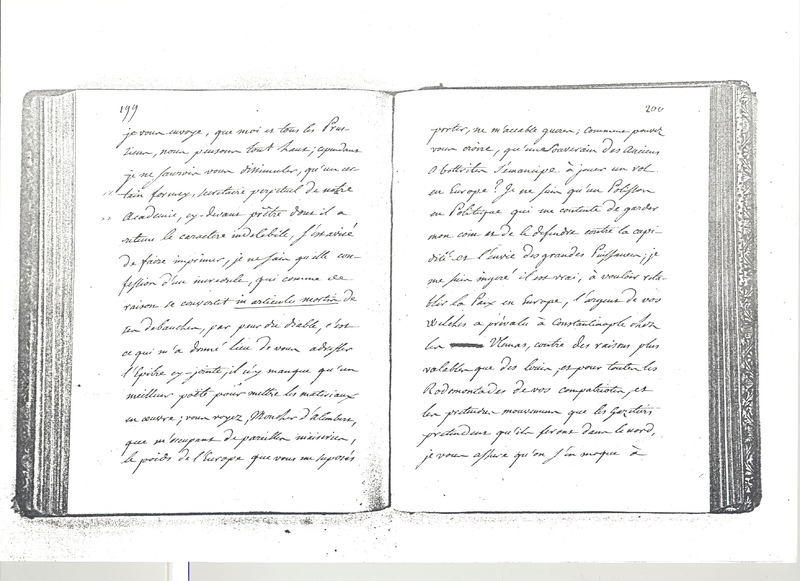 199
je vous envoye, que moi et tous les Prus-
siens, nous pensons tout haut; cependant
je ne saurois vous dissimuler, qu'un cer-
tain formey, secretaire perpetuel de nôtre
Academie, cy-devant prêtre dont il a
retenu le caractere indelebile, s'est avisé
de faire imprimer, je ne sais qu'elle con-
fession d'un incredule, qui comme de
raison se convertit in articulo mortis de
ses debauches, par peur du diable, c'est
ce qui m'a donné lieu de vous adresser
l'Epitre cy-jointe; il n'y manque qu'un
meilleur poëte pour mettre les materiaux
en œuvre; vous voyez, Monsier d'alembert,
que m'occupant de pareilles niaiseries,
le poids de l'Europe que vous me suposés
200
porter, ne m'accable gueres; comment pouvez
vous croire, qu'un Souverain des Anciens
Obotrites s'emancipe à jouer un rol
en Europe? Je ne suis qu'un Polisson
en Politique qui me contente de garder
mon coin et de le defendre contre la cupi-
dité et l'Envie des grandes Puissances; je
me suis ingeré il est vrai, à vouloir reta-
blir la Paix en Europe, l'argent de vos
Welches a prévalu à Constantinople chez
les Ulemas, contre des raisons plus
valables que des louis, et pour toutes les
Rodomontades de vos compatriotes, et
les pretendus mouvemens que les Gazetiers
pretendent qu'ils feront dans le nord,
je vous assure qu'on s'en moque à